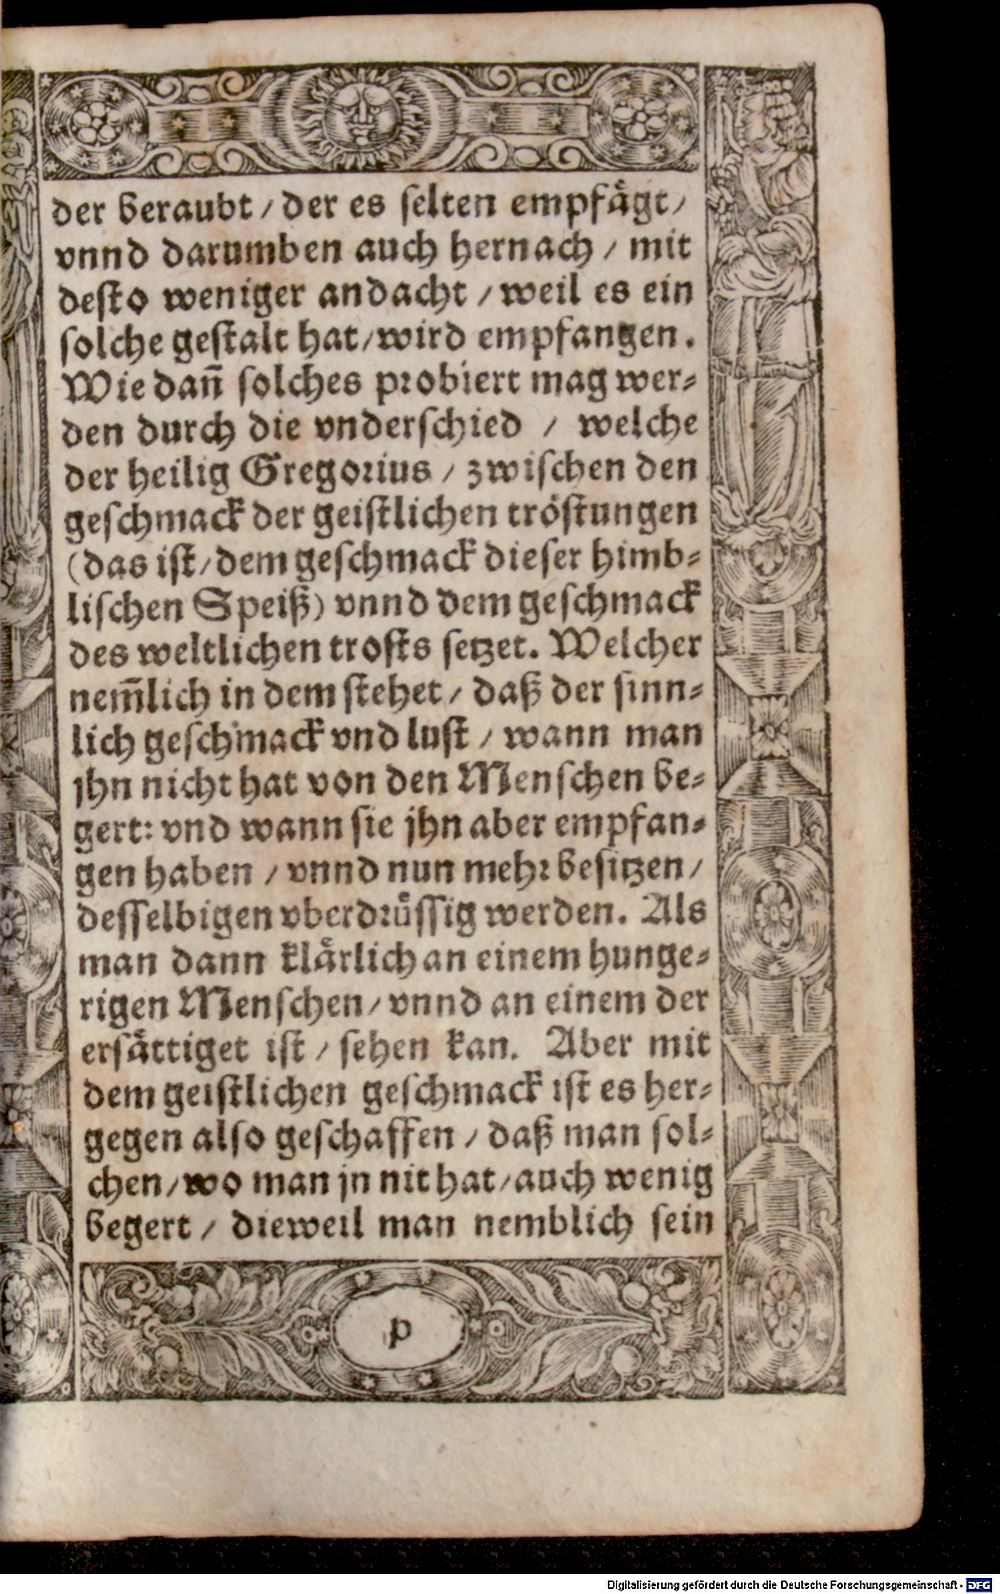 der beraubt / der es selten empfågt /
vnnd darumben auch hernach / mit
desto weniger andacht / weil es ein
solche gestalt hat / wird empfangen.
Wie dañ solches probiert mag wer-
den durch die vnderschied / welche
der heilig Gregorius / zwischen den
geschmack der geistlichen tröstungen
(das ist / dem geschmack dieser himb-
lischen Speiß) vnnd dem geschmack
des weltlichen trosts setzet. Welcher
nem̃lich in dem stehet / daß der sinn-
lich geschmack vnd lust / wann man
jhn nicht hat von den Menschen be-
gert: vnd wann sie jhn aber empfan-
gen haben / vnnd nun mehr besitzen /
desselbigen vberdrüssig werden. Als
man dann klårlich an einem hunge-
rigen Menschen / vnnd an einem der
ersåttiget ist / sehen kan. Aber mit
dem geistlichen geschmack ist es her-
gegen also geschaffen / daß man sol-
chen / wo man jn nit hat / auch wenig
begert / dieweil man nemblich sein
p
Digitalisierung gefördert durch die Deutsche Forschungsgemeinschaft - DFG